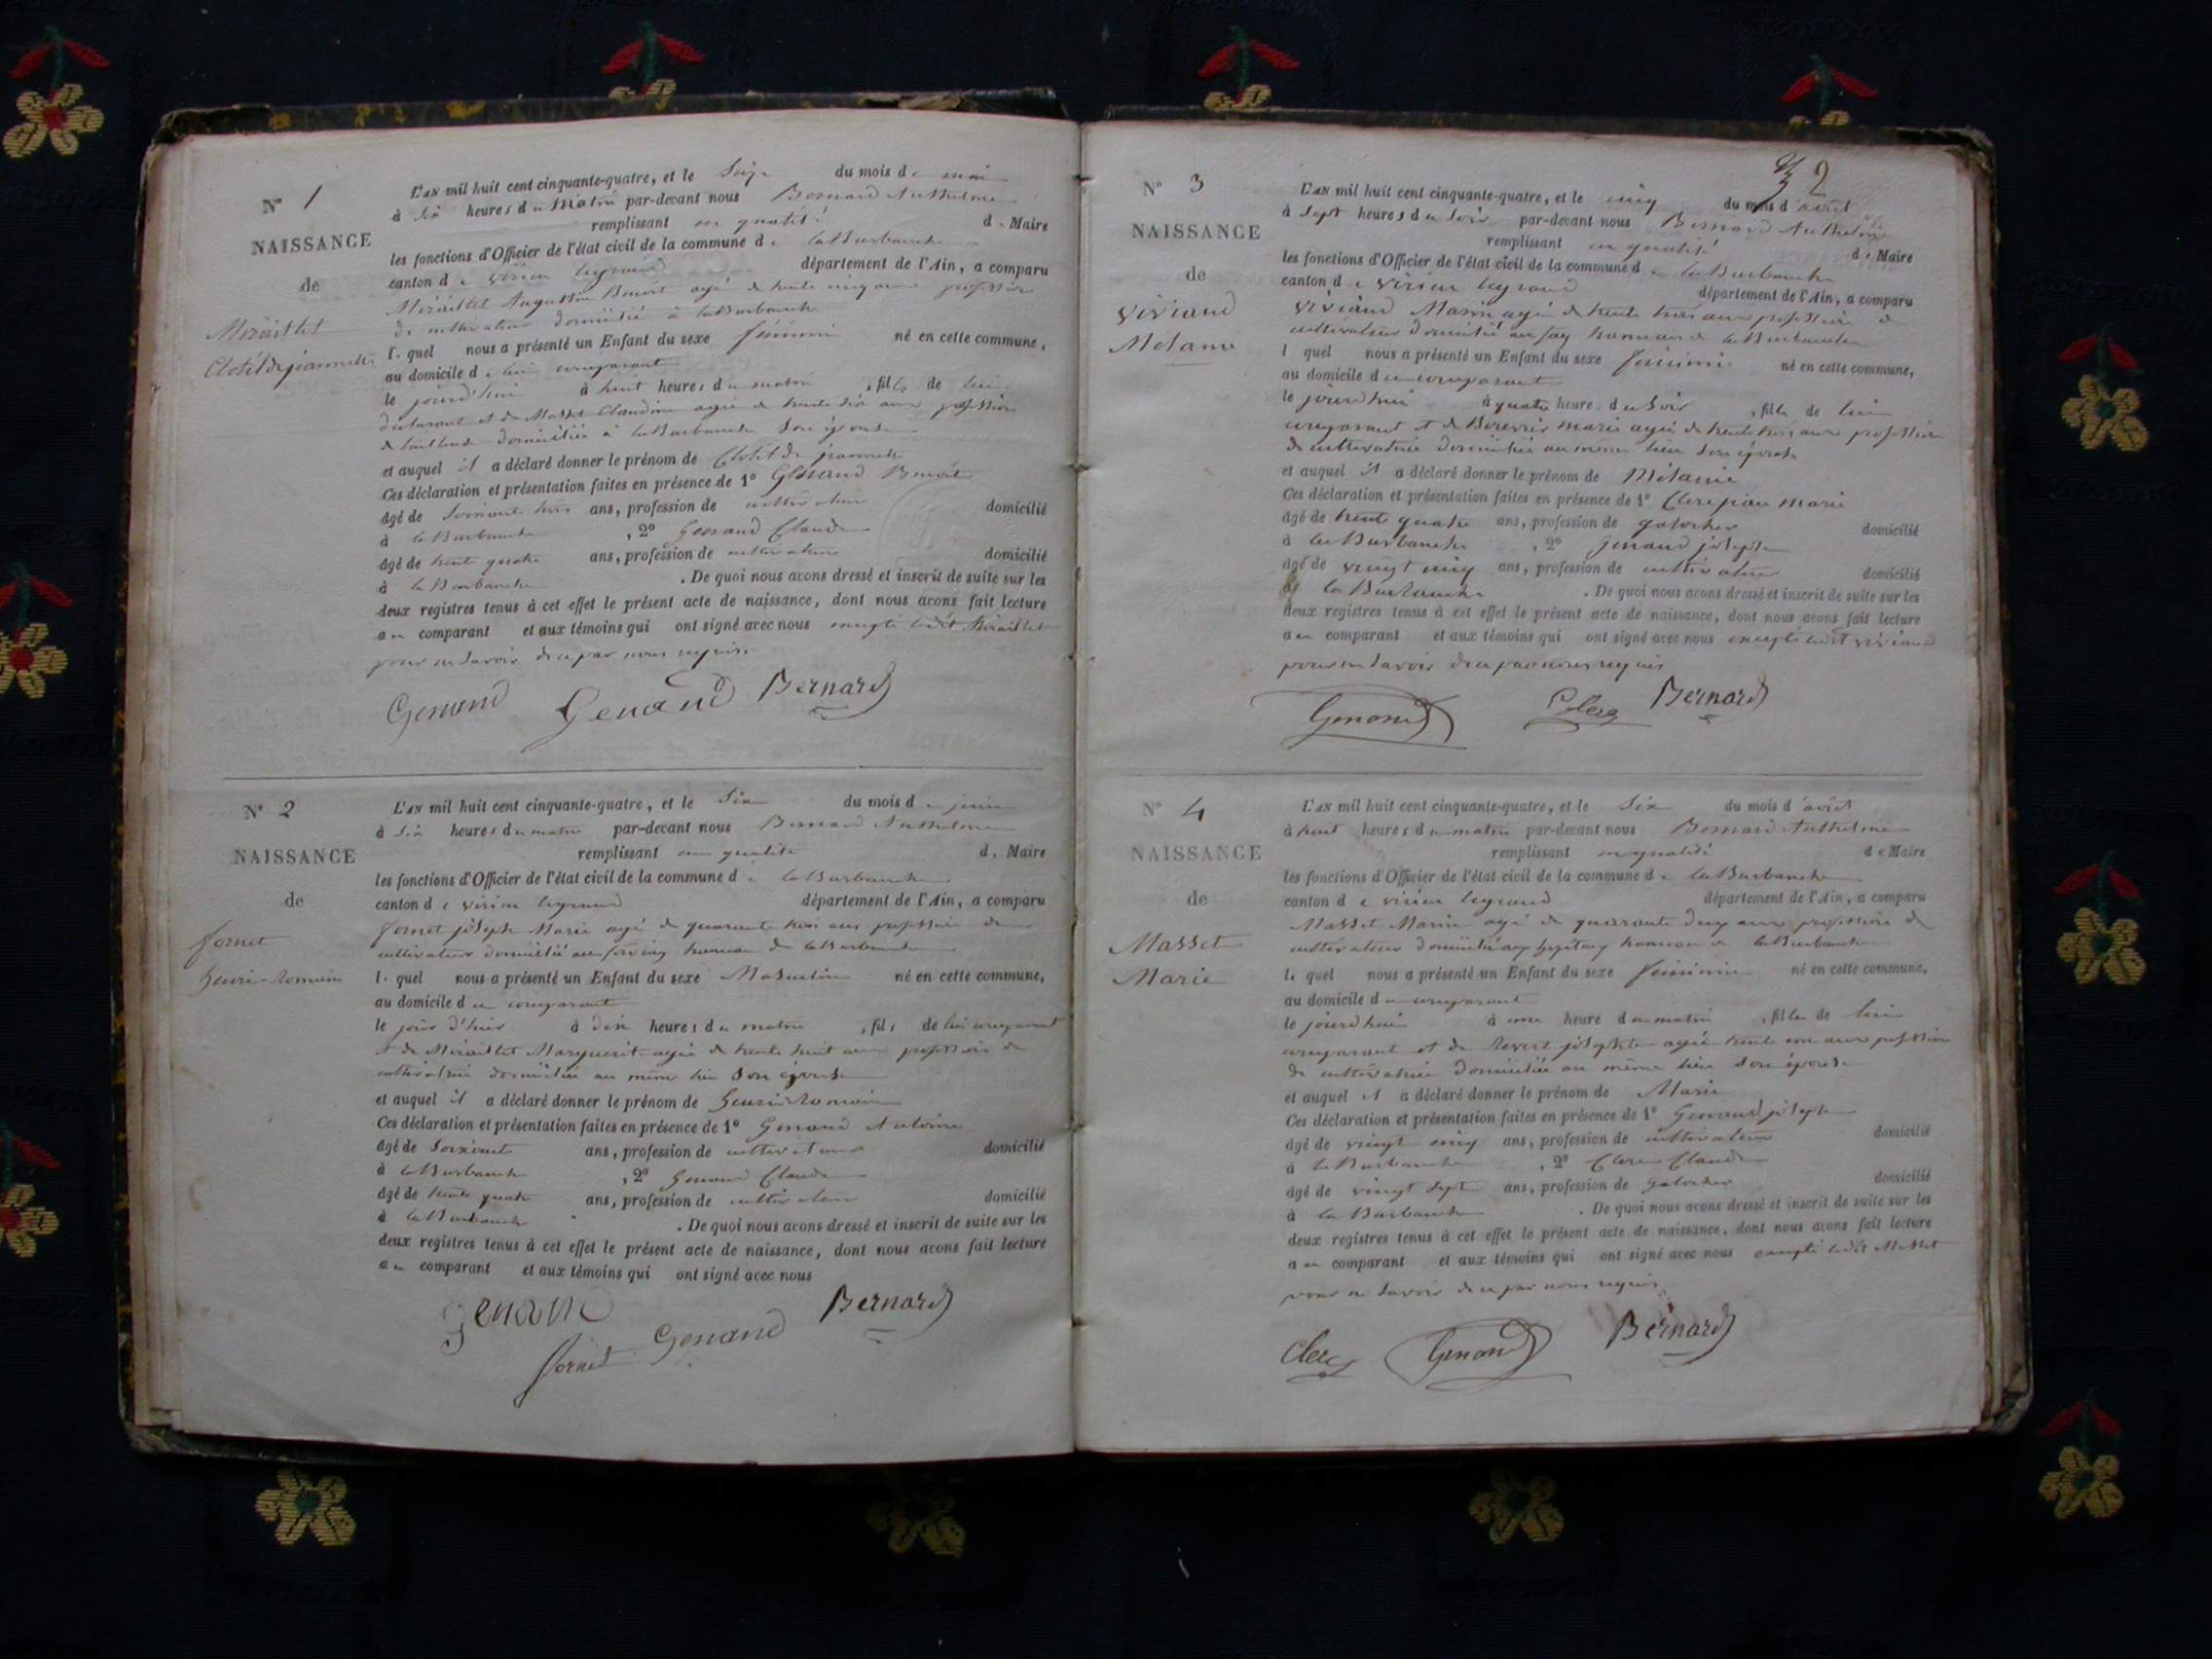 N° 1
NAISSANCE
de
Miraillet
Clotilde jeannette
L'AN mil huit cent cinquante-quatre, et le Seize du mois de mai
à Six heures du Matin par-devant nous Bernard Anthelme
remplissant en qualité de Maire
les fonctions d'Officier de l'état civil de la commune de la Burbanche
canton de virieu legrand département de l'Ain, a comparu
Miraillet Augustin Benoit agé de trente cinq ans profession
de cultivateur domicilié à la Burbanche
lequel nous a présenté un Enfant du sexe féminin né en cette commune,
au domicile de lui comparant
le jourd'hui à heures du matin, fille de lui
déclarant et de Masset Claudine agée de trente six ans profession
de domiciliée à la Burbanche Son épouse
et auquel il a déclaré donner le prénom de Clotilde jeannette
Ces déclaration et présentation faites en présence de 1° Genand Benoit
âgé de Soixante trois ans, profession de cultivateur domicilié
à la Burbanche, 2° Genand Claude
âgé de trente quatre ans, profession de cultivateur domicilié
à la Burbanche. De quoi nous avons dressé et inscrit de suite sur les
deux registres tenus à cet effet le présent acte de naissance, dont nous avons fait lecture
au comparant et aux témoins qui ont signé avec nous excepté ledit Miraillet
pour ne Savoir de ce par nous requis.
Genand Genand Bernard
N° 2
NAISSANCE
de
fornet
henri-Romain
L'AN mil huit cent cinquante-quatre, et le Six du mois de juin
à Six heures du matin par-devant nous Bernard Anthelme
remplissant en qualité de Maire
les fonctions d'Officier de l'état civil de la commune de la Burbanche
canton de virieu legrand département de l'Ain, a comparu
fornet joseph Marie agé de quarante trois ans profession de
cultivateur domicilié au hameau de la Burbanche
lequel nous a présenté un Enfant du sexe Masculin né en cette commune,
au domicile du comparant
le jour d'hier à dix heures du matin, fils de lui comparant
et de Miraillet Marguerite agée de trente huit ans profession de
cultivatrice domiciliée au même lieu Son épouse
et auquel il a déclaré donner le prénom de henri-Romain
Ces déclaration et présentation faites en présence de 1° Genand Antoine
âgé de Soixante ans, profession de cultivateur domicilié
à la Burbanche, 2° Genand Claude
âgé de trente quatre ans, profession de cultivateur domicilié
à la Burbanche. De quoi nous avons dressé et inscrit de suite sur les
deux registres tenus à cet effet le présent acte de naissance, dont nous avons fait lecture
au comparant et aux témoins qui ont signé avec nous
Genand Bernard
fornet Genand
2
N° 3
NAISSANCE
de
viviand
Mélanie
L'AN mil huit cent cinquante-quatre, et le cinq du mois d'avril
à Sept heures du Soir par-devant nous Bernard Anthelme
remplissant en qualité de Maire
les fonctions d'Officier de l'état civil de la commune de la Burbanche
canton de virieu legrand département de l'Ain, a comparu
viviand Marin agé de trente trois ans profession de
cultivateur domicilié au fay hameau de la Burbanche
lequel nous a présenté un Enfant du sexe féminin né en cette commune,
au domicile du comparant
le jourdhui à quatre heure du Soir, fille de lui
comparant et de marie agée de trente trois ans profession
de cultivatrice domiciliée au même lieu Son épouse
et auquel il a déclaré donner le prénom de Mélanie
Ces déclaration et présentation faites en présence de 1° Clerc marie
âgé de trente quatre ans, profession de galocher domicilié
à la Burbanche, 2° Genand joseph
âgé de vingt cinq ans, profession de cultivateur domicilié
à la Burbanche. De quoi nous avons dressé et inscrit de suite sur les
deux registres tenus à cet effet le présent acte de naissance, dont nous avons fait lecture
au comparant et aux témoins qui ont signé avec nous excepté ledit viviand
pour ne Savoir de ce par nous requis
Genand Clerc Bernard
N° 4
NAISSANCE
de
Masset
Marie
L'AN mil huit cent cinquante-quatre, et le Six du mois d'avril
à huit heures du matin par-devant nous Bernard Anthelme
remplissant en qualité de Maire
les fonctions d'Officier de l'état civil de la commune de la Burbanche
canton de virieu legrand département de l'Ain, a comparu
Masset Marin agé de quarante deux ans profession de
cultivateur domicilié aux hameau de la Burbanche
lequel nous a présenté un Enfant du sexe féminin né en cette commune,
au domicile du comparant
le jourdhui à une heure du matin, fille de lui
comparant et de Revert josephte agée trente ans profession
de cultivatrice domiciliée au même lieu Son épouse
et auquel il a déclaré donner le prénom de Marie
Ces déclaration et présentation faites en présence de 1° Genand joseph
âgé de vingt cinq ans, profession de cultivateur domicilié
à la Burbanche, 2° Clerc Claude
âgé de vingt sept ans, profession de galocher domicilié
à la Burbanche. De quoi nous avons dressé et inscrit de suite sur les
deux registres tenus à cet effet le présent acte de naissance, dont nous avons fait lecture
au comparant et aux témoins qui ont signé avec nous excepté ledit Masset
pour ne Savoir de ce par nous requis
Clerc Genand Bernard